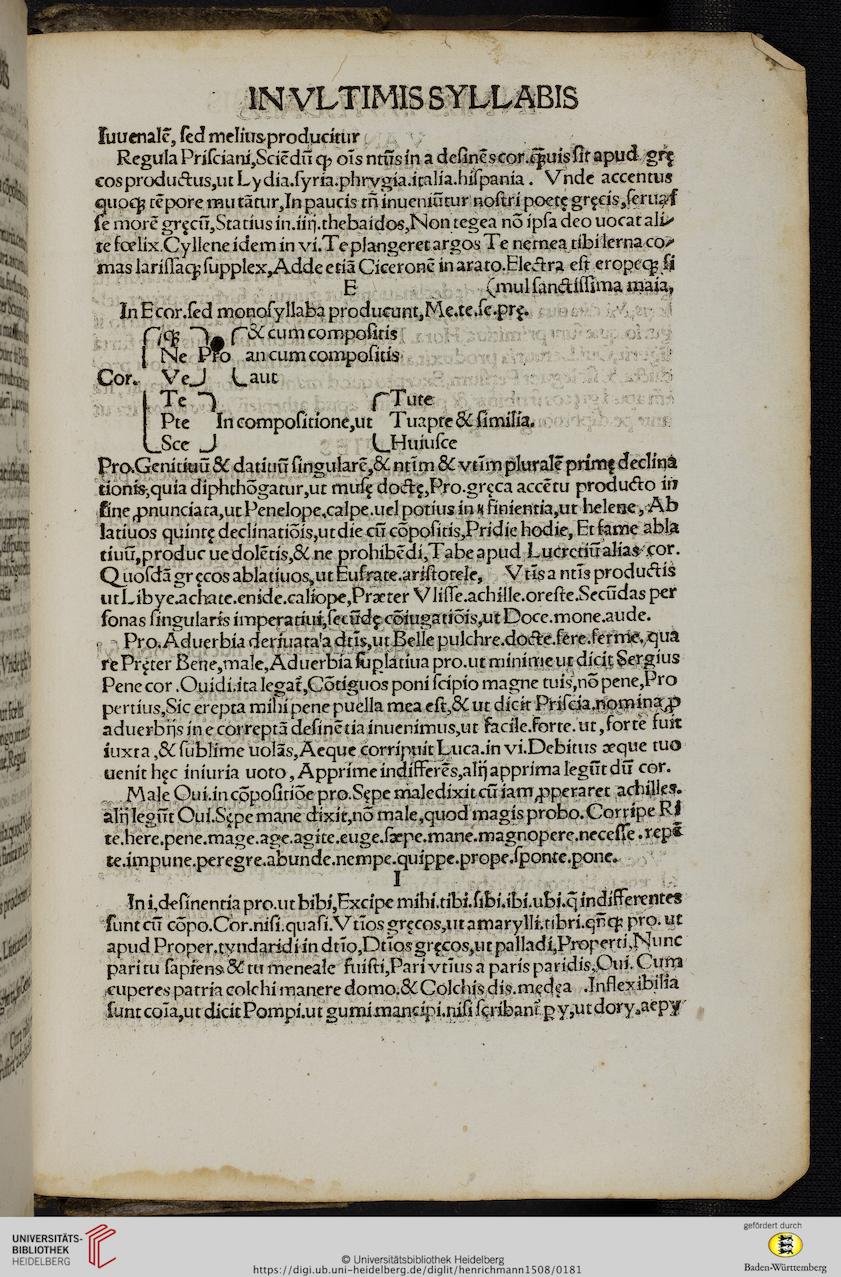 IN VLTIMIS SYLLABIS
Iuuenalē, ſed melius producitur
Regula Priſciani, Sciēdū ꝙ oīs ntūs in a deſinēs cor. ꝗ̈uis ſit apud grę
cos productus, ut Lydia. ſyria. phrygia. italia. hiſpania. Vnde accentus
quoqꝫ tēpore mutātur, In paucis tn̄ inueniūtur noſtri poetę gręcis, ſeruaſ
ſe morē gręcū, Statius in. iiij. thebaidos, Non tegea nō ipſa deo uocat ali⸗
te fœlix. Cyllene idem in vi. Te plangeret argos Te nemea tibi lerna co⸗
mas lariſſaqꝫ ſupplex, Adde etiā Ciceronē in arato. Electra eſt eropeqꝫ ſi
E (mul ſanctiſſima maia,
In E cor. ſed monoſyllaba producunt, Me. te. ſe. prę.
qꝫ & cum compoſitis
Ne Pro an cum compoſitis
Cor. Ve aut
Te Tute
Pte In compoſitione, ut Tuapte & ſimilia.
Sce Huiuſce
Pro. Genitiuū & datiuū ſingularē, & ntīm & vtīm pluralē primę declina
tionis, quia diphthōgatur, ut muſę doctę, Pro. gręca accētu producto in
fine ꝓnunciata, ut Penelope, calpe. uel potius in η finientia, ut helene, Ab
latiuos quintę declinatiōis, ut die cū cōpoſitis, Pridie hodie, Et fame abla
tiuū, produc ue dolētis, & ne prohibēdi, Tabe apud Lucretiū alias cor.
Quoſdā gręcos ablatiuos, ut Eufrate. ariſtotele, Vtīs a ntīs productis
ut Libye. achate. enide. caliope, Præter Vliſſe. achille. oreſte. Secūdas per
ſonas ſingularis imperatiui, ſecūdę cōiugatiōis, ut Doce. mone. aude.
Pro. Aduerbia deriuata a dtīs, ut Belle pulchre. docte. fere. ferme, qua
re Pręter Bene, male, Aduerbia ſuplatiua pro. ut minime ut dicit Sergius
Pene cor. Ouidi. ita legat̄, Cōtiguos poni ſcipio magne tuis, nō pene, Pro
pertius, Sic erepta mihi pene puella mea eſt, & ut dicit Priſcia. nomina, ꝓ
aduerbijs in e correptā deſinētia inuenimus, ut facile. forte. ut, forte fuit
iuxta, & ſublime uolās, Aeque corripuit Luca. in vi. Debitus æque tuo
uenit hęc iniuria uoto, Apprime indifferēs, alij apprima legūt dū cor.
Male Oui. in cōpoſitiōe pro. Sępe maledixit cū iam ꝓperaret achilles.
alij legūt Oui. Sępe mane dixit, nō male, quod magis probo. Corripe Ri
te. here. pene. mage. age. agite. euge. ſæpe. mane. magnopere. neceſſe. repē
te. impune. peregre. abunde. nempe. quippe. prope. ſponte. pone.
I
In i, deſinentia pro. ut bibi, Excipe mihi. tibi. ſibi. ibi. ubi. q̄ indifferentes
ſunt cū cōpo. Cor. niſi. quaſi. Vtīos gręcos, ut amarylli. tibri. qn̄qꝫ pro. ut
apud Proper. tyndaridi in dtīo, Dtīos gręcos, ut palladi, Properti, Nunc
pari tu ſapiens & tu meneale fuiſti, Pari vtīus a paris paridis, Oui. Cum
cuperes patria colchi manere domo. & Colchis dis. mędęa. Inflexibilia
ſunt coīa, ut dicit Pompi. ut gumi mancipi. niſi ſcribant̄ p y, ut dory, aepy
UNIVERSITÄTS-
BIBLIOTHEK
HEIDELBERG
© Universitätsbibliothek Heidelberg
https://digi.ub.uni-heidelberg.de/diglit/henrichmann1508/0181
gefördert durch
Baden-Württemberg